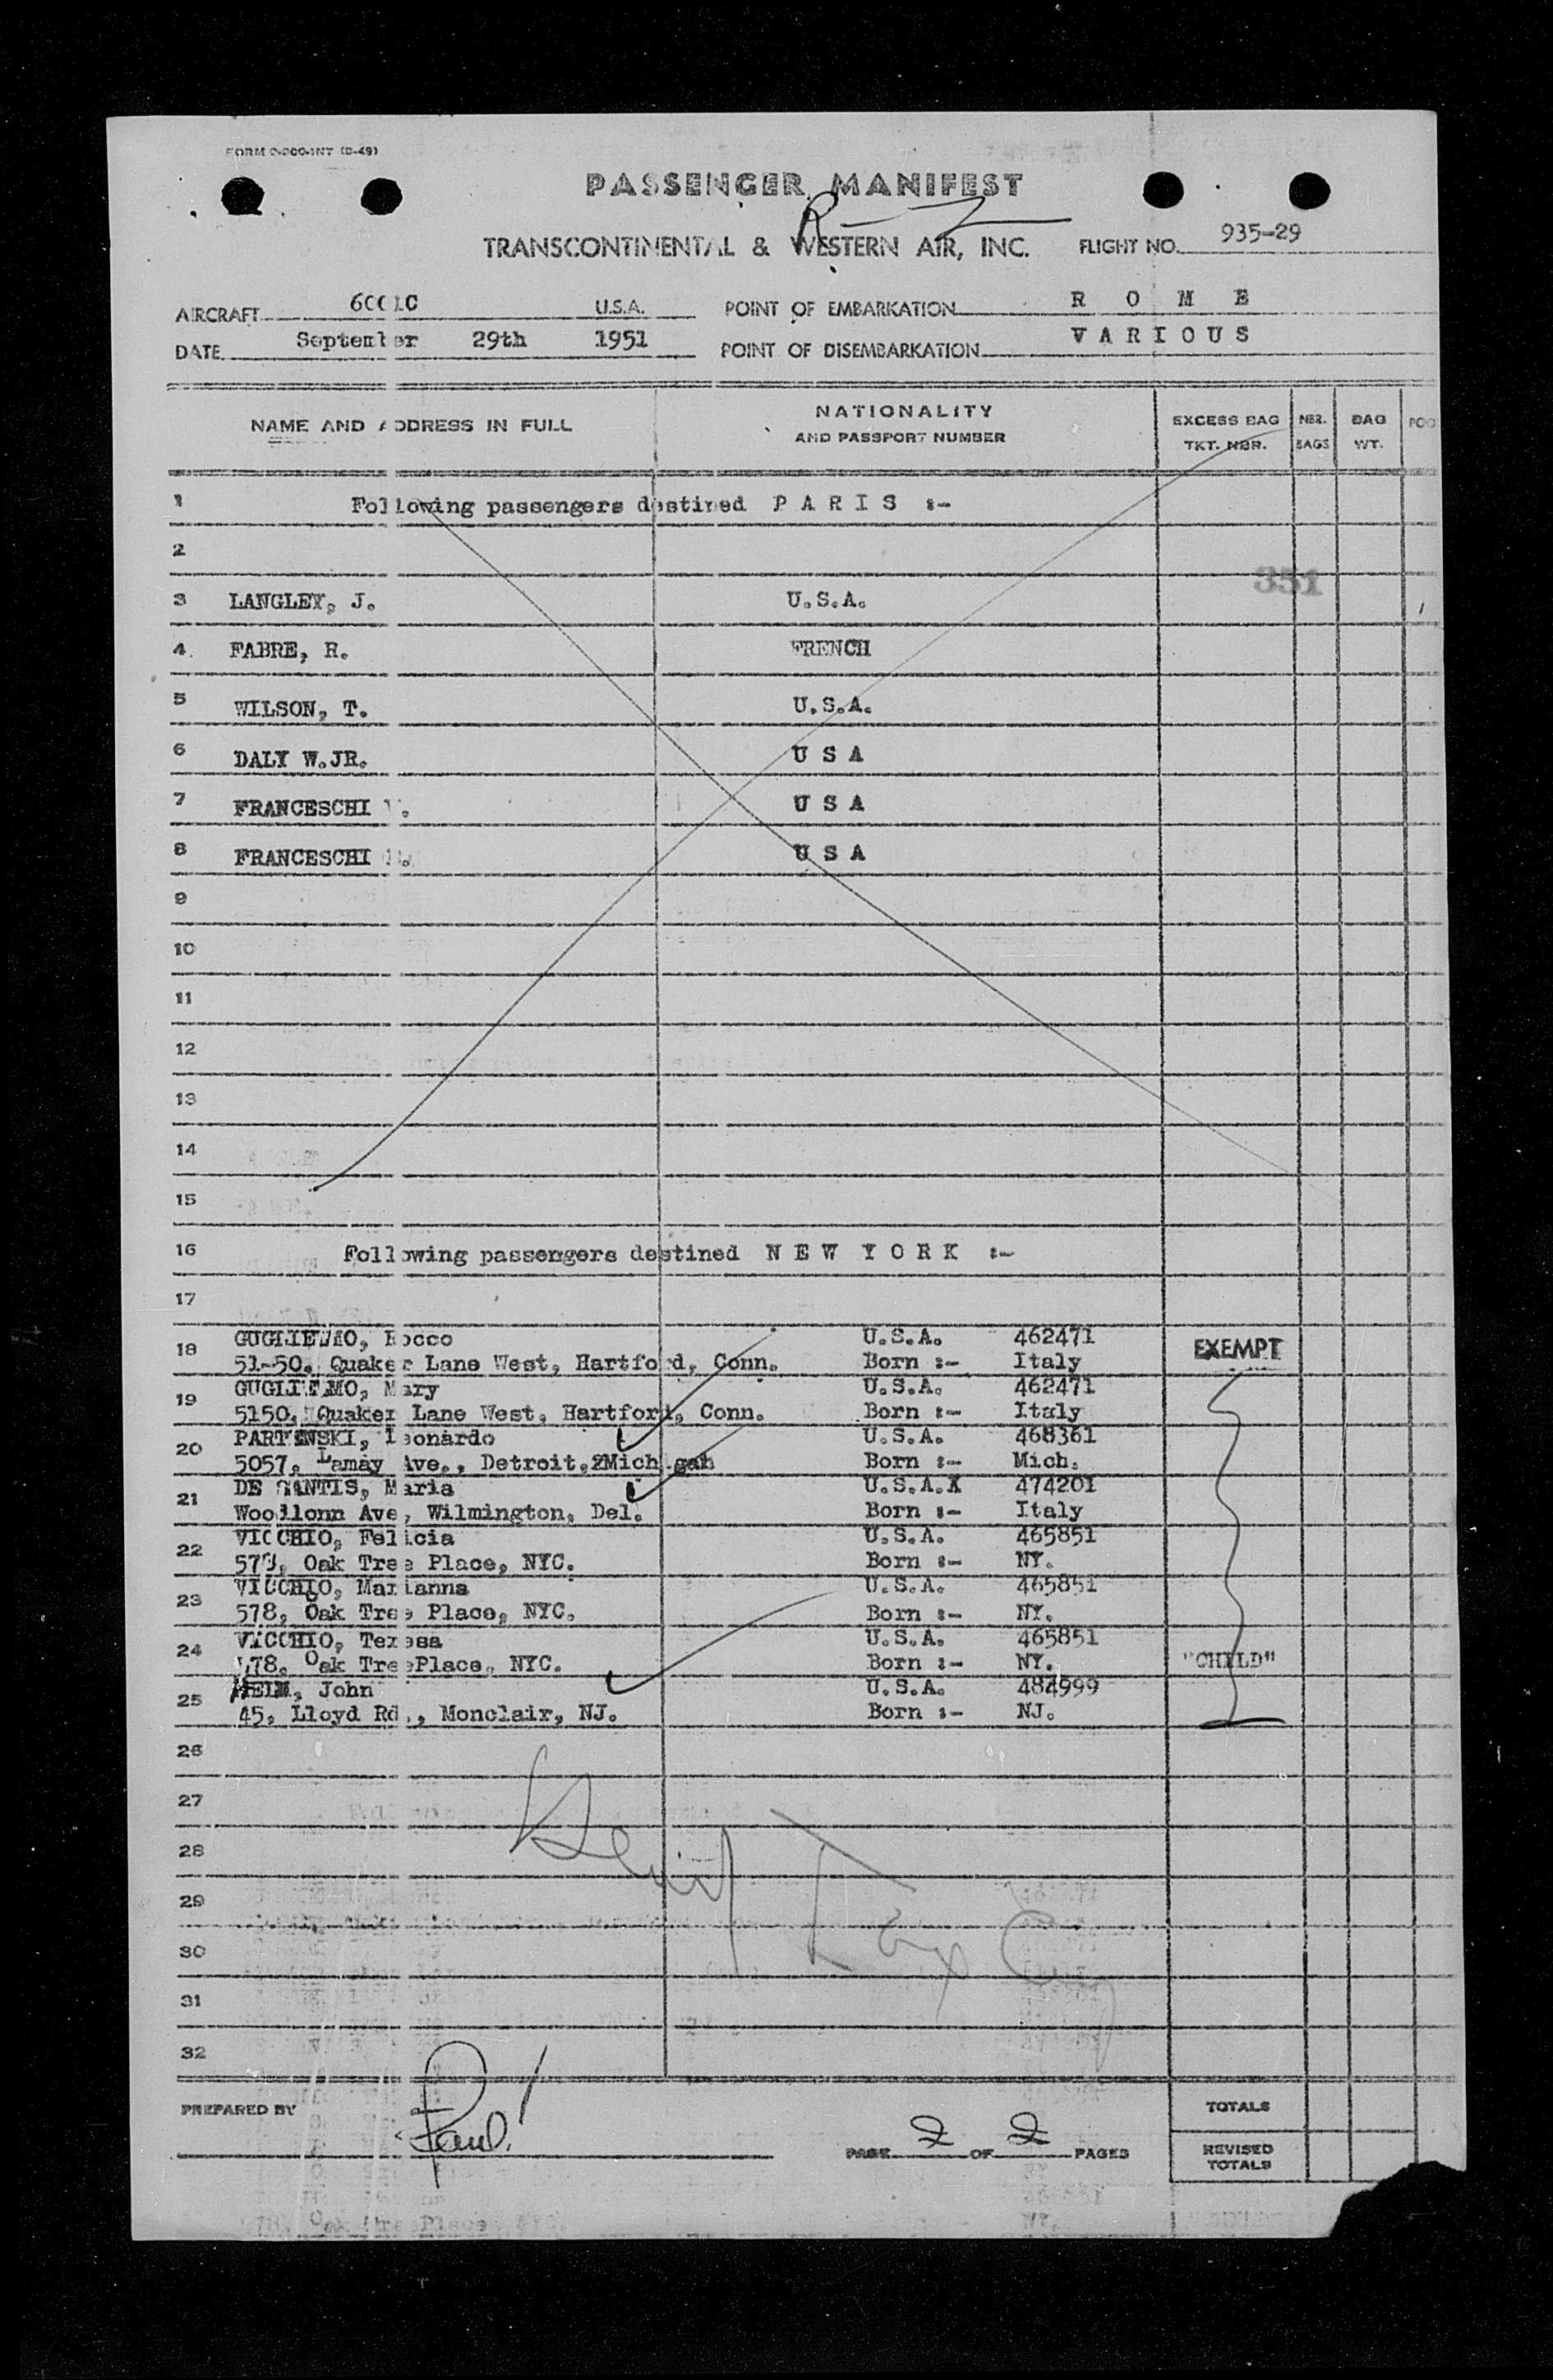 FORM O-300-INT (D-49)
PASSENGER MANIFEST
TRANSCONTINENTAL & WESTERN AIR, INC. FLIGHT NO. 935-29
AIRCRAFT U.S.A. POINT OF EMBARKATION R O M E
DATE September 29th 1951 POINT OF DISEMBARKATION V A R I O U S
NAME AND ADDRESS IN FULL NATIONALITY AND PASSPORT NUMBER EXCESS BAG TKT. NBR. NBR. BAGS BAG WT.
1 Following passengers destined P A R I S :-
2
351
3 LANGLEY, J. U.S.A.
4 FABRE, R. FRENCH
5 WILSON, T. U.S.A.
6 DALY W.JR. U S A
7 FRANCESCHI U S A
8 FRANCESCHI U S A
9
10
11
12
13
14
15
16 Following passengers destined N E W Y O R K :-
17
18 GUGLIELMO, Rocco U.S.A. 462471 EXEMPT
51-50, Quaker Lane West, Hartford, Conn. Born :- Italy
19 GUGLIELMO, Mary U.S.A. 462471
5150, Quaker Lane West, Hartford, Conn. Born :- Italy
20 Leonardo U.S.A. 468361
5057, Lamay Ave., Detroit, Michigan Born :- Mich.
21 DE SANTIS, Maria U.S.A.X 474201
Woodlonn Ave, Wilmington, Del. Born :- Italy
22 VICCHIO, Felicia U.S.A. 465851
578, Oak Tree Place, NYC. Born :- NY.
23 VICCHIO, Marianna U.S.A. 465851
578, Oak Tree Place, NYC. Born :- NY.
24 VICCHIO, Teresa U.S.A. 465851
578, Oak TreePlace, NYC. Born :- NY. "CHILD"
25 John U.S.A. 484999
45, Lloyd Rd., Monclair, NJ. Born :- NJ.
26
27
28
29
30
31
32
PREPARED BY
PAGE 2 OF 2 PAGES
TOTALS
REVISED TOTALS